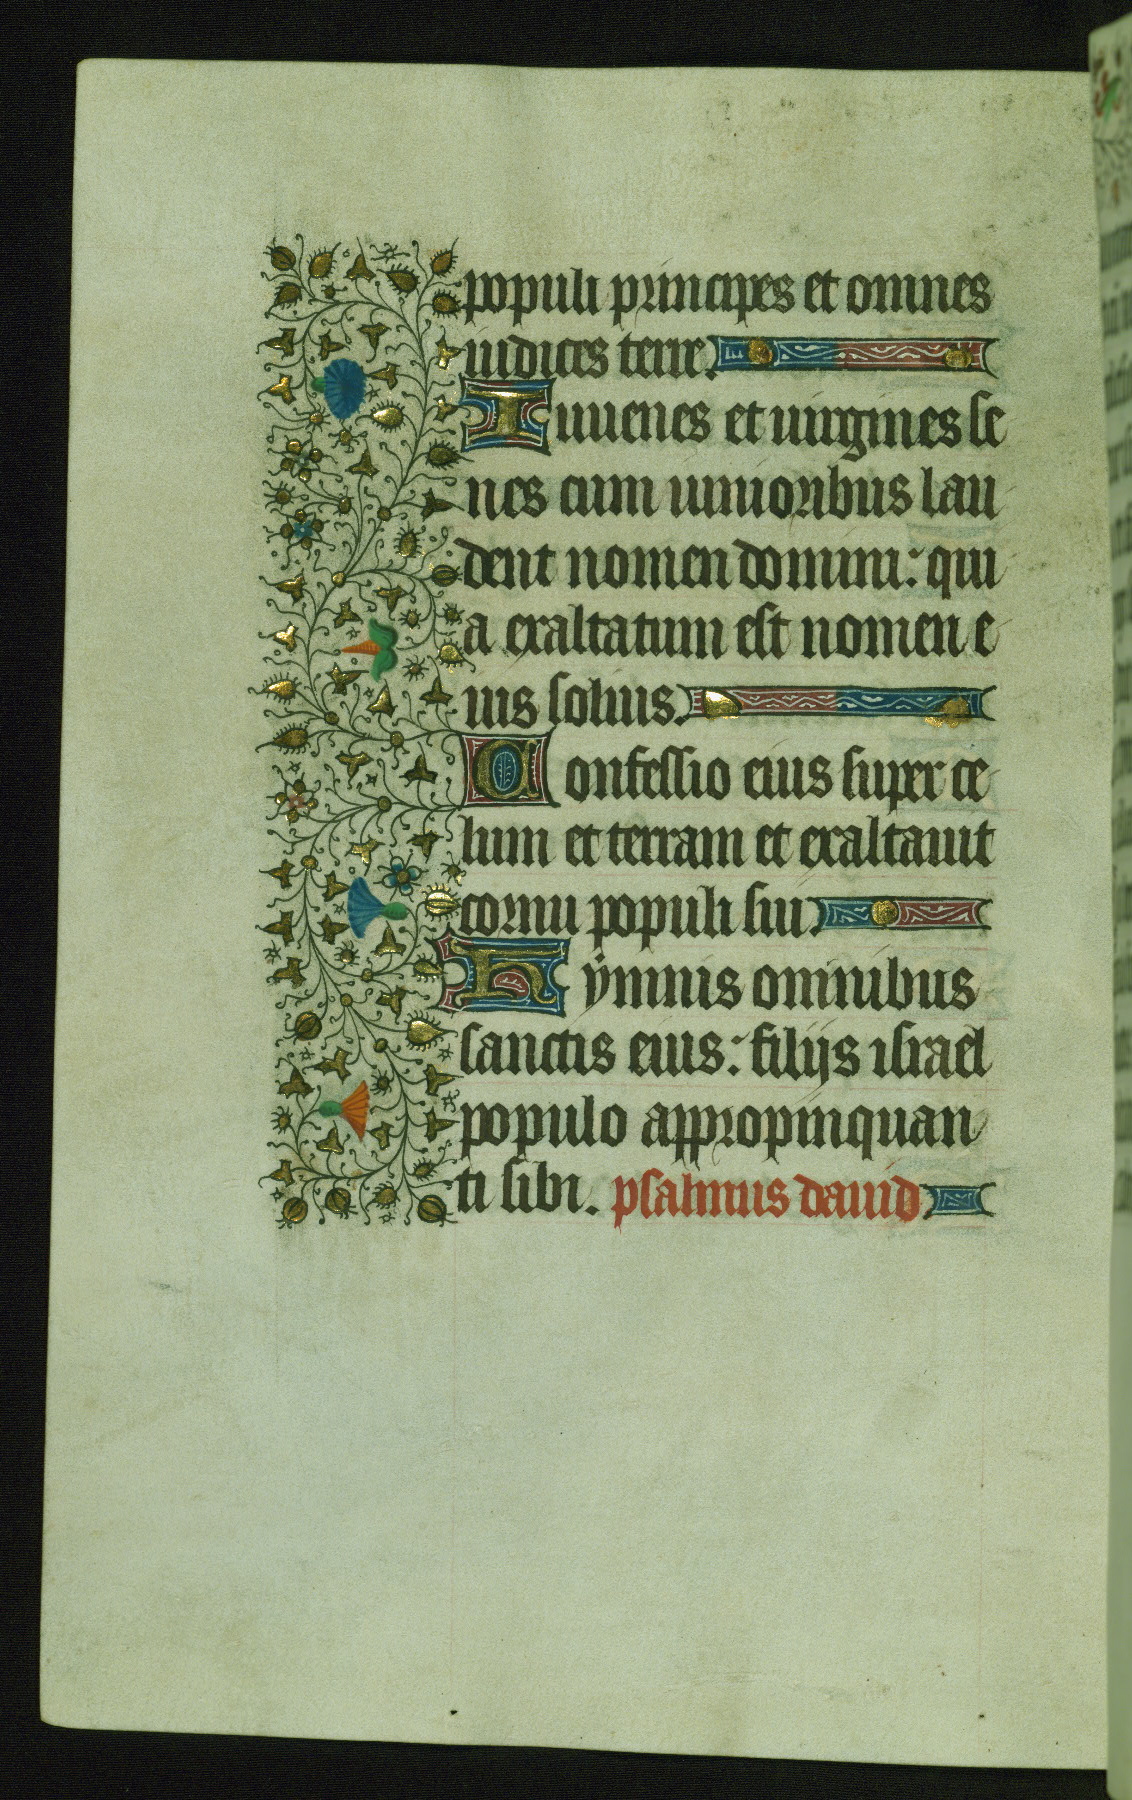 populi principes et omnes
iudices terre.
Iuuenes et uirgines se
nes cum iunioribus lau
dent nomen domini: qui
a exaltatum est nomen e
ius solius.
Confessio eius super ce
lum et terram et exaltauit
cornu populi sui.
Hymnus omnibus
sanctis eius: filijs israel
populo appropinquan
ti sibi. psalmus dauid